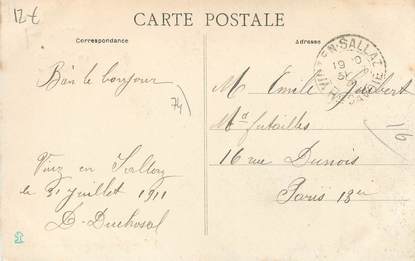 12 €
CARTE POSTALE
Correspondance
Adresse
VIUZ-EN-SALLAZ
Bien le bonjour
74
Viuz en Sallaz
le 31 juillet 1911
D. Duchosal
M Emile
Md futailles
16 rue Dunois
Paris 13e